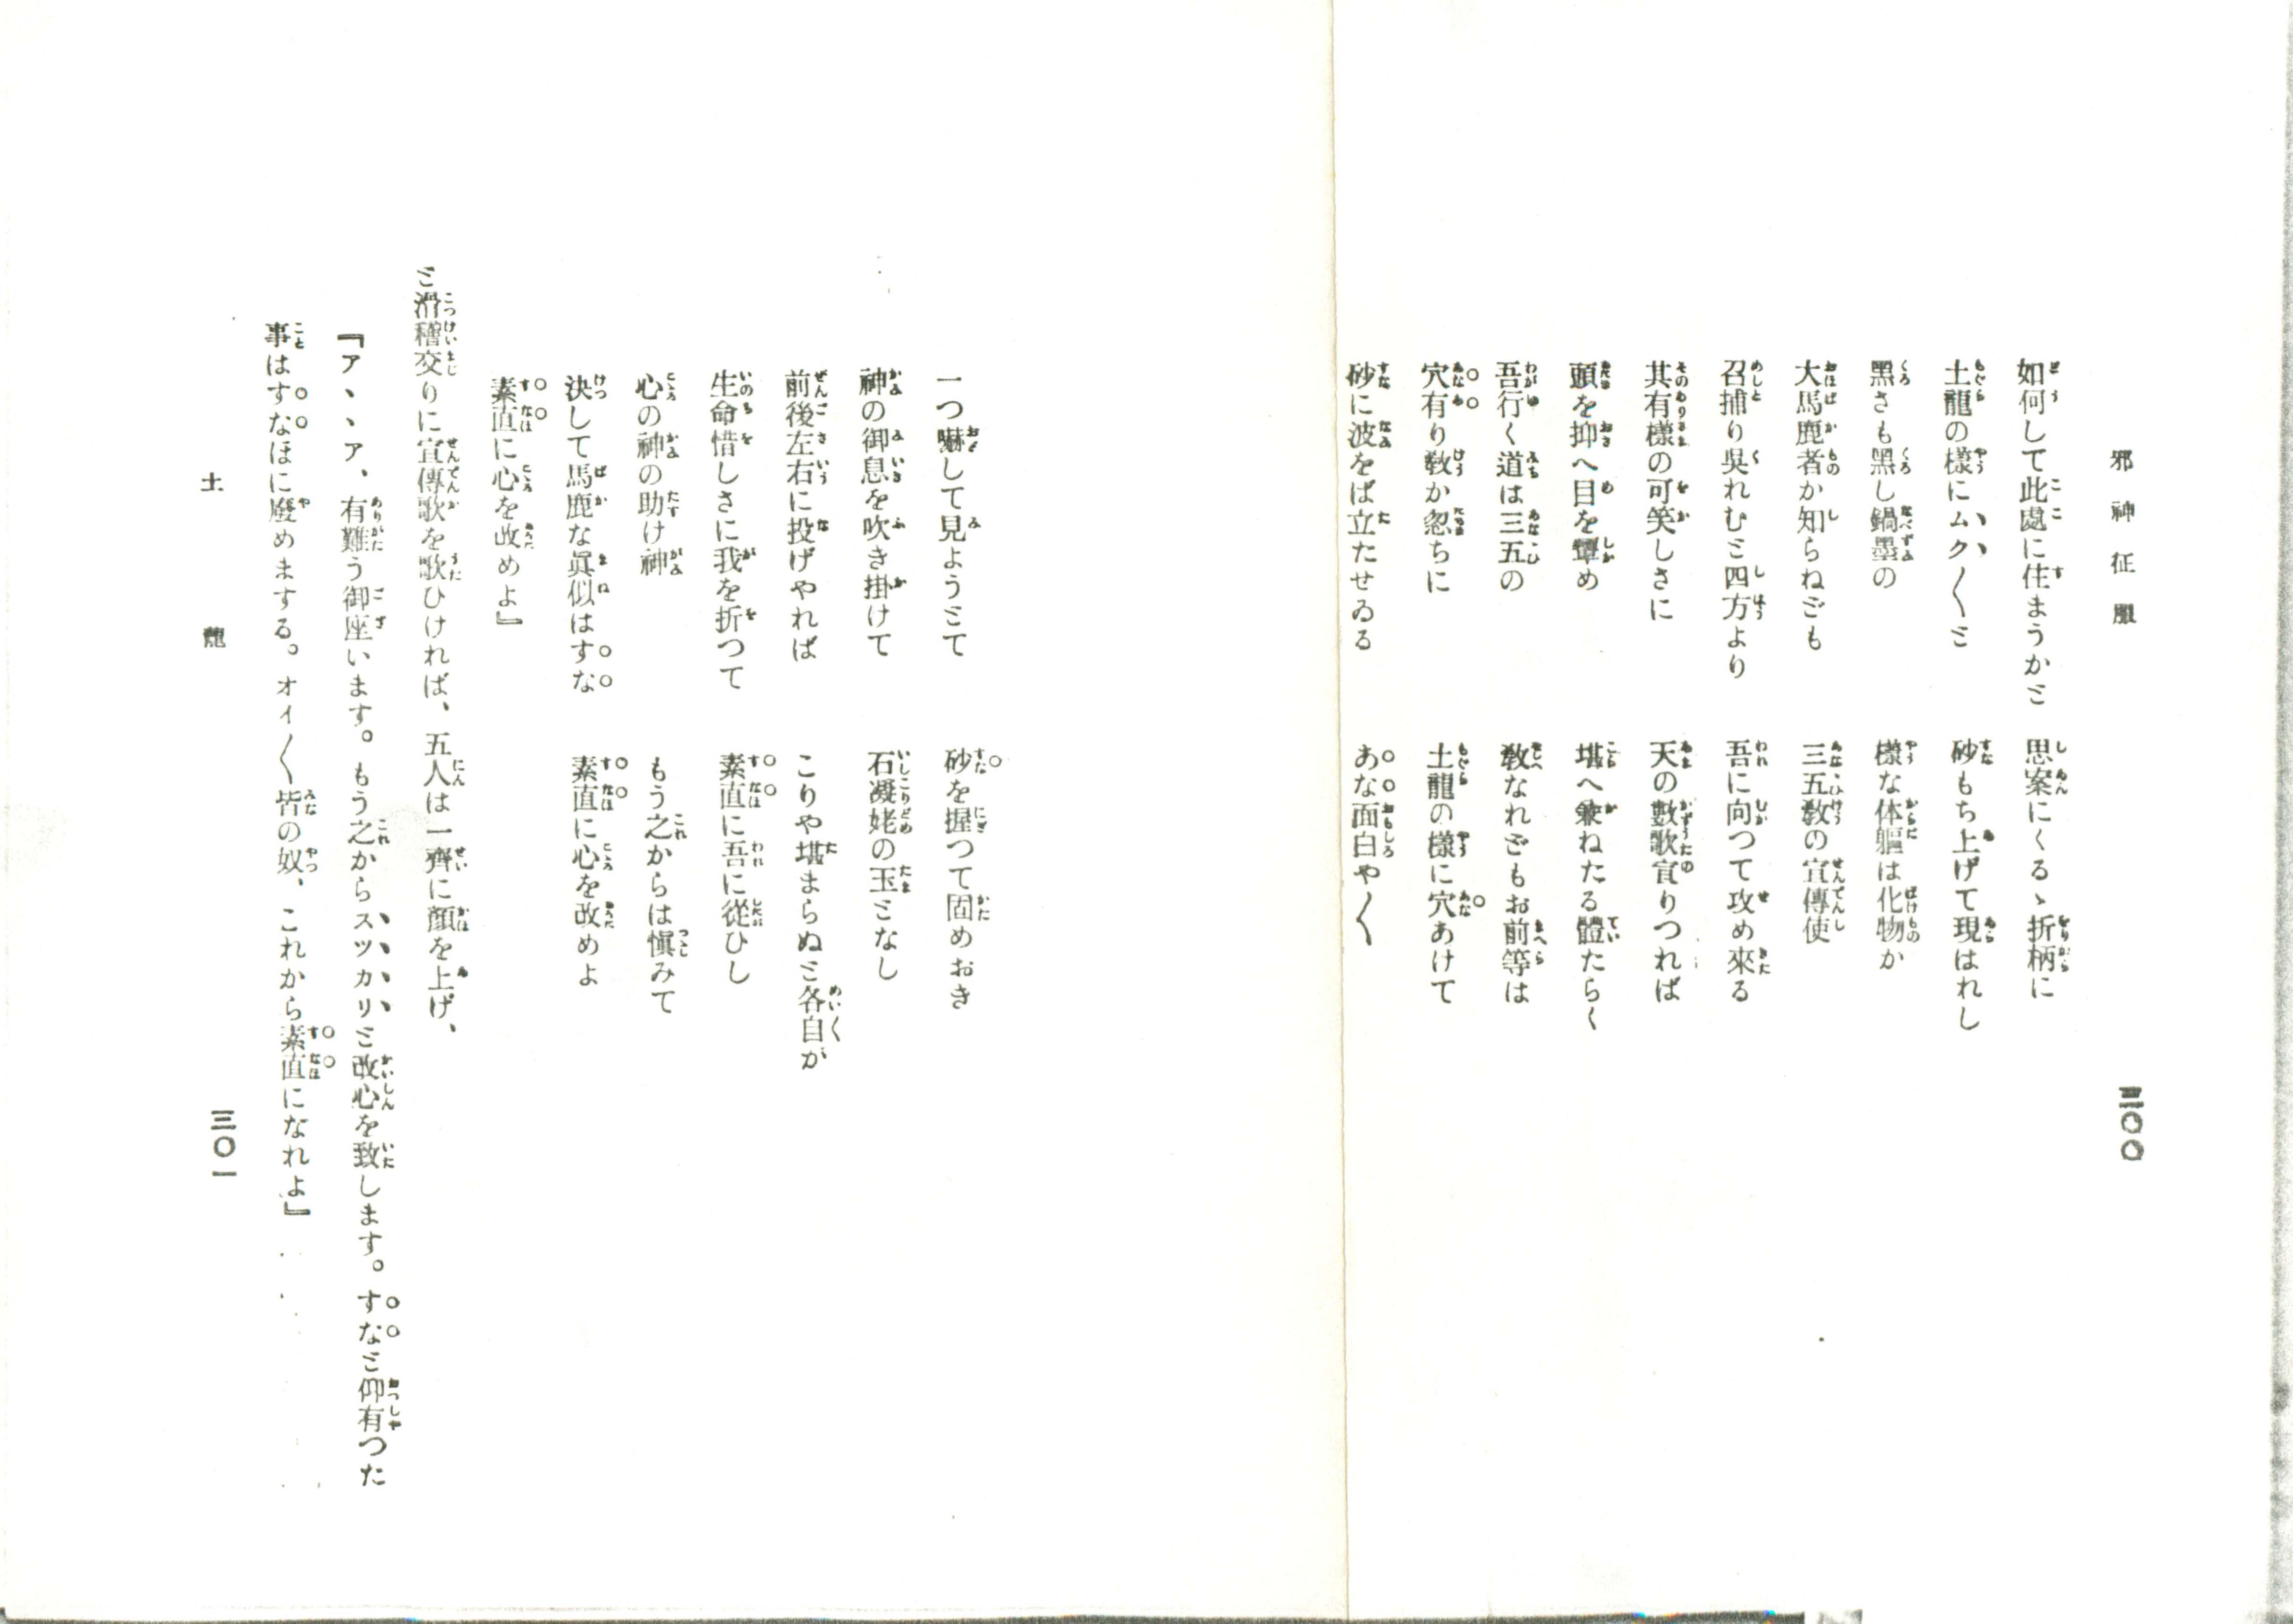 邪神征服
三〇〇
如何して此處に住まうかと 思案にくるゝ折柄に
土龍の樣にムク〳〵と 砂もち上げて現はれし
黑さも黑し鍋墨の 樣な体軀は化物か
大馬鹿者か知らねども 三五敎の宣傳使
召捕り吳れむと四方より 吾に向つて攻め來る
其有樣の可笑しさに 天の數歌宣りつれば
頭を抑へ目を顰め 堪へ兼ねたる體たらく
吾行く道は三五の 敎なれどもお前等は
穴有り敎か忽ちに 土龍の樣に穴あけて
砂に波をば立たせゐる あな面白や〳〵
一つ嚇して見ようとて 砂を握つて固めおき
神の御息を吹き掛けて 石凝姥の玉となし
前後左右に投げやれば こりや堪まらぬと各自が
生命惜しさに我を折つて 素直に吾に從ひし
心の神の助け神 もう之からは愼みて
決して馬鹿な眞似はすな 素直に心を改めよ
素直に心を改めよ』
と滑稽交りに宣傳歌を歌ひければ、五人は一齊に顏を上げ、
『アヽヽア、有難う御座います。もう之からスツカリと改心を致します。すなと仰有つた
事はすなほに廢めまする。オイ〳〵皆の奴、これから素直になれよ』
土龍
三〇一